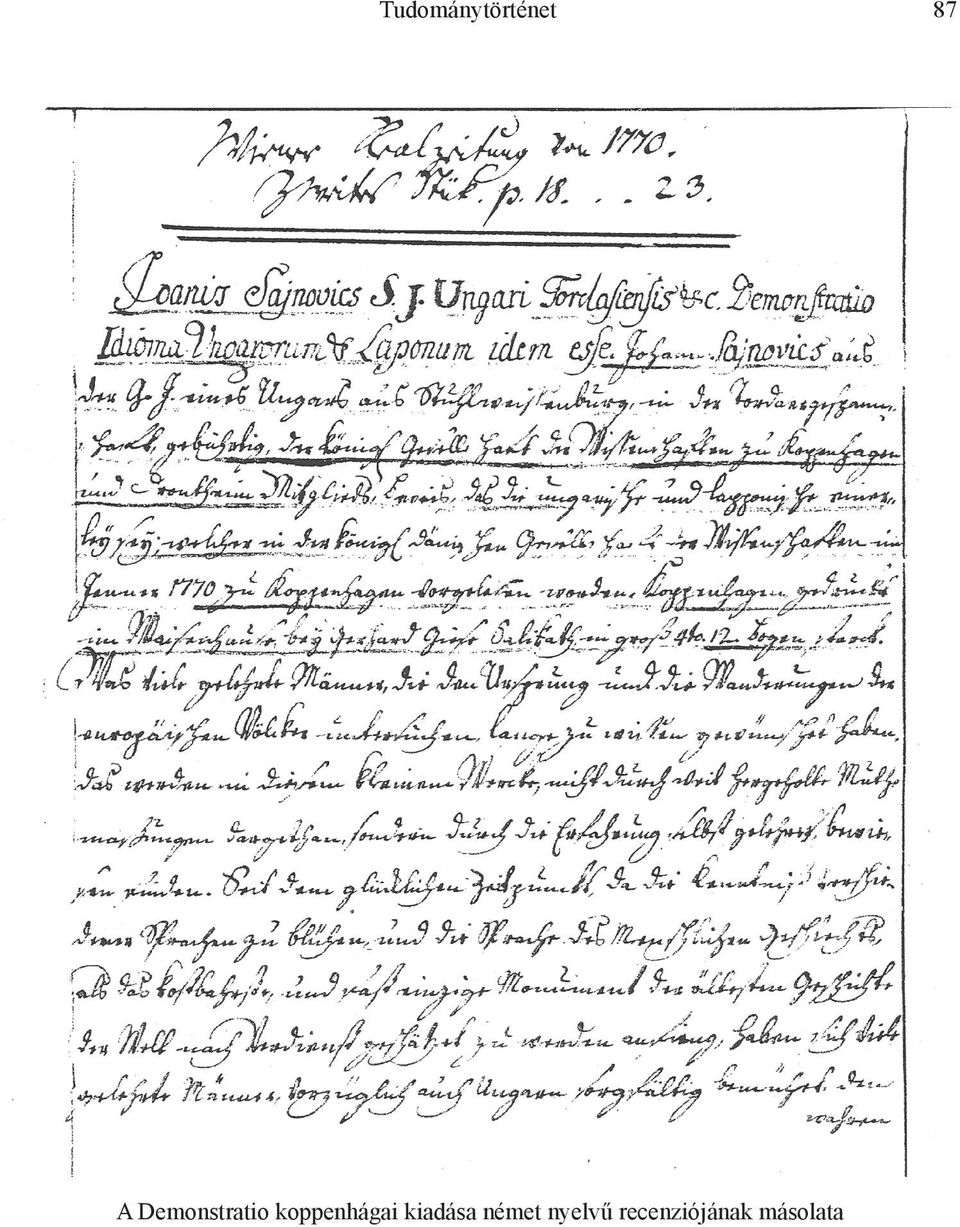 Tudománytörténet 87
Wiener Realzeitung von 1770.
Zweites Stük. p. 18. . . 23.
Joanis Sajnovics S. J. Ungari Tordasiensis &c. Demonstratio
Idioma Ungarorum & Laponum idem esse. Johann Sajnovics aus
der G. J. eines Ungars aus Stuhlweissenburg, in der Tordaergespann,
schaft, gebührtig, der königl Gesellschaft der Wissenschaften zu Koppenhagen
und Drontheim Mitglieds, Beweis, das die ungarische und lapponische einer,
ley sey; welcher in der königl dänischen Gesellschaft der Wissenschaften im
Jenner 1770 zu Koppenhagen vorgelesen worden. Koppenhagen gedruckt
im Waisenhause bey Gerhard Giese Salikath in groß 4to. 12. bogen starck.
Was viele gelehrte Männer, die den Ursprung und die Wanderungen der
europäischen Völcker untersuchen, lange zu wissen gewünschet haben,
das werden in diesem kleinem Wercke, nicht durch weit hergeholte Muth,
massungen dargethan, sondern durch die Erfahrung selbst gelehret, bewie,
sen finden. Seit dem glücklichen Zeitpunckt, da die Kenntniß verschie,
dener Sprachen zu blühen, und die Sprache des Menschlichen Geschlechts,
als das kostbahrste, und fast einzige Monument der ältesten Geschichte
der Welt nach Verdienst geschätzet zu werden anfieng, haben sich viele
gelehrte Männer, vorzüglich auch Ungarn sorgfältig bemühet, den
wahren
A Demonstratio koppenhágai kiadása német nyelvű recenziójának másolata